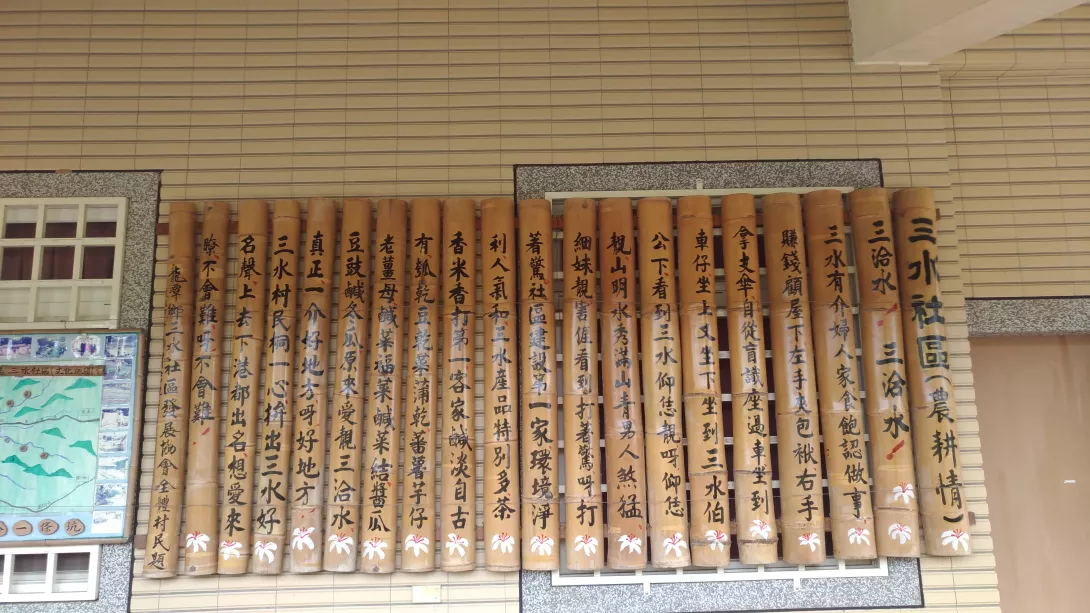 三水社區(農耕情)
三洽水!三洽水!
三水有介婦人家食飽認做事
賺錢顧屋下左手夾包袱右手
拿支傘自從盲識座過車坐到
車仔坐上又坐下坐到三水伯
公下看到三水仰恁靚呀仰恁
靚山明水秀滿山青男人煞猛
細妹靚害𠊎看到打著驚呀打
著驚社區建設第一家環境淨
利人氣和三水產品特別多茶
香米香打第一客家鹹淡自古
有瓠乾豆乾菜蒲乾蕃薯芋仔
老薑母鹹菜福菜鹹菜結醬瓜
豆豉鹹冬瓜原來愛靚三洽水
真正一介好地方呀好地方
三水村民桐一心拚出三水好
名聲上去下港都出名想愛來
瞭不會難呀不會難!
龍潭鄉三水社區發展協會全體村民題
一條坑